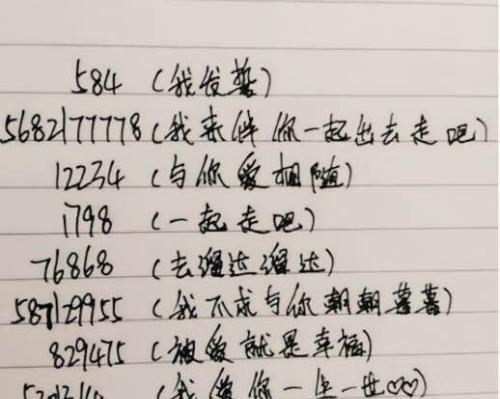 584 (我发誓)
5682177778 (我来伴你一起出去走吧)
12234 (与你爱相随)
1798 (一起走吧)
76868 (去溜达溜达)
587129955 (我不求与你朝朝暮暮)
829475 (被爱就是幸福)
(我爱你一生一世♡♡)